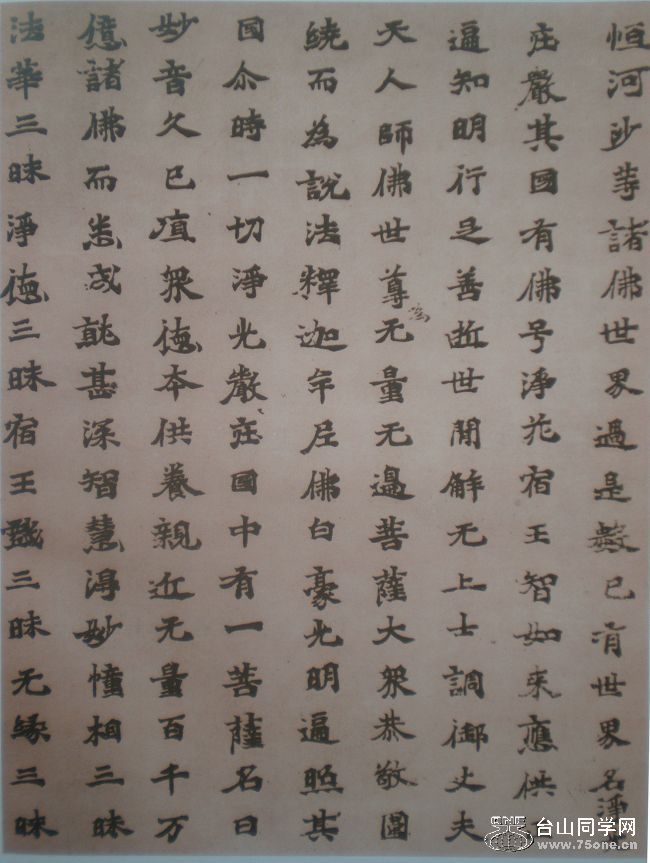 恒河沙等諸佛世界過是數已有世界名淨
庄嚴其國有佛号淨花宿王智如来應供
遍知明行足善逝世間解无上士調御丈夫
天人師佛世尊為无量无邊菩薩大眾恭敬圍
繞而為說法釋迦牟尼佛白豪光明遍照其
國尒時一切淨光嚴庄國中有一菩薩名曰
妙音久已殖眾德本供養親近无量百千万
億諸佛而悉成就甚深智慧得妙幢相三昧
法華三昧淨德三昧宿王戲三昧无緣三昧
ONE 台山同学网
www.75one.cn